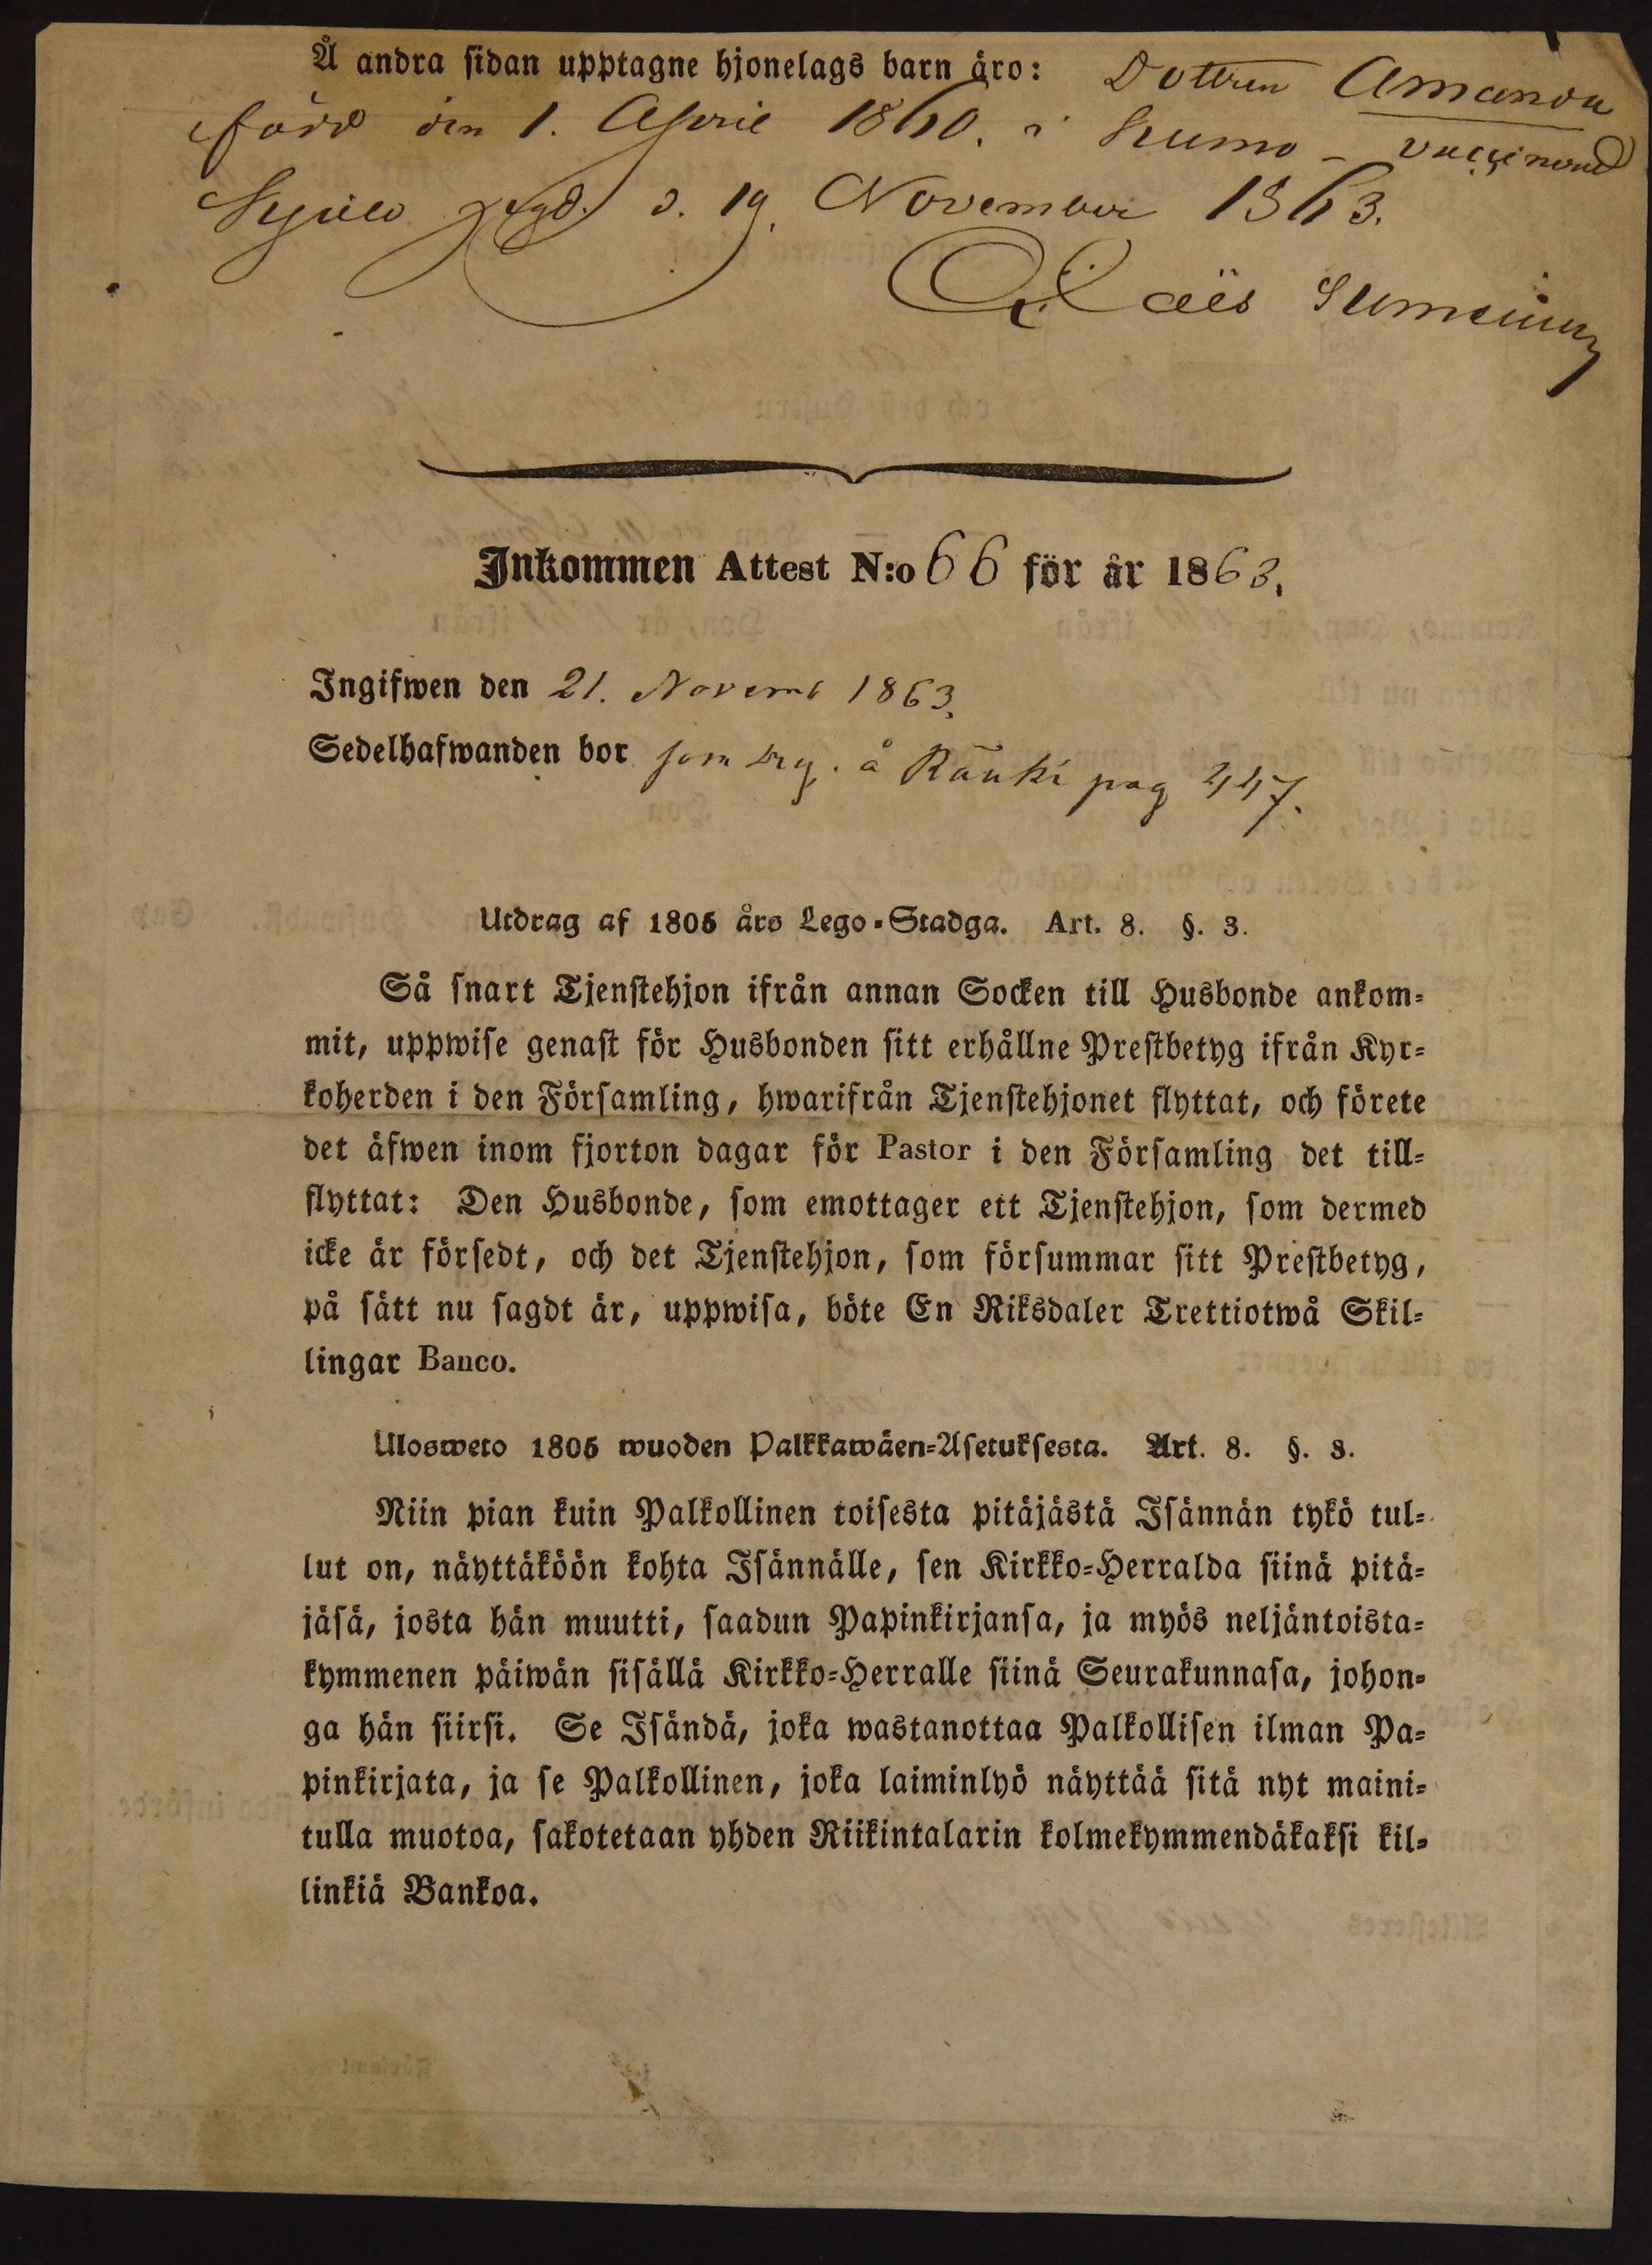 Å andra sidan upptagne hjonelags barn äro: Dottren Amanda
född den 1. April 1860. i Kumo - vaccinerad
d. 19. November 1863.
Inkommen Attest N:o 66 för år 1863.
Ingifwen den 21. Novemb 1863.
Sedelhafwanden bor som drg. å Räuki pag 447.
Utdrag af 1805 års Lego-Stadga. Art. 8. §. 3.
Så snart Tjenstehjon ifrån annan Socken till Husbonde ankom-
mit, uppwise genast för Husbonden sitt erhållne Prestbetyg ifrån Kyr-
koherden i den Församling, hwarifrån Tjenstehjonet flyttat, och förete
det äfwen inom fjorton dagar för Pastor i den Församling det till-
flyttat: Den Husbonde, som emottager ett Tjenstehjon, som dermed
icke är försedt, och det Tjenstehjon, som försummar sitt Prestbetyg,
på sätt nu sagdt är, uppwisa, böte En Riksdaler Trettiotwå Skil-
lingar Banco.
Ulosweto 1805 wuoden Palkkawäen-Asetuksesta. Art. 8. §. 3.
Niin pian kuin Palkollinen toisesta pitäjästä Isännän tykö tul-
lut on, näyttäköön kohta Isännälle, sen Kirkko-Herralda siinä pitä-
jäsä, josta hän muutti, saadun Papinkirjansa, ja myös neljäntoista-
kymmenen päiwän sisällä Kirkko-Herralle siinä Seurakunnasa, johon-
ga hän siirsi. Se Isändä, joka wastanottaa Palkollisen ilman Pa-
pinkirjata, ja se Palkollinen, joka laiminlyö näyttää sitä nyt maini-
tulla muotoa, sakotetaan yhden Riikintalarin kolmekymmendäkaksi kil-
linkiä Bankoa.